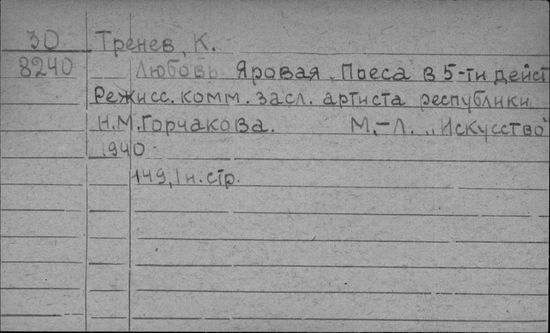 30 Тренев, К.
8240 Любовь Яровая. Пьеса в 5-ти дейст
Режисс. комм. засл. артиста республики
Н.М. Горчакова. М.-Л. „Искусство"
1940
149, 1 н. стр.